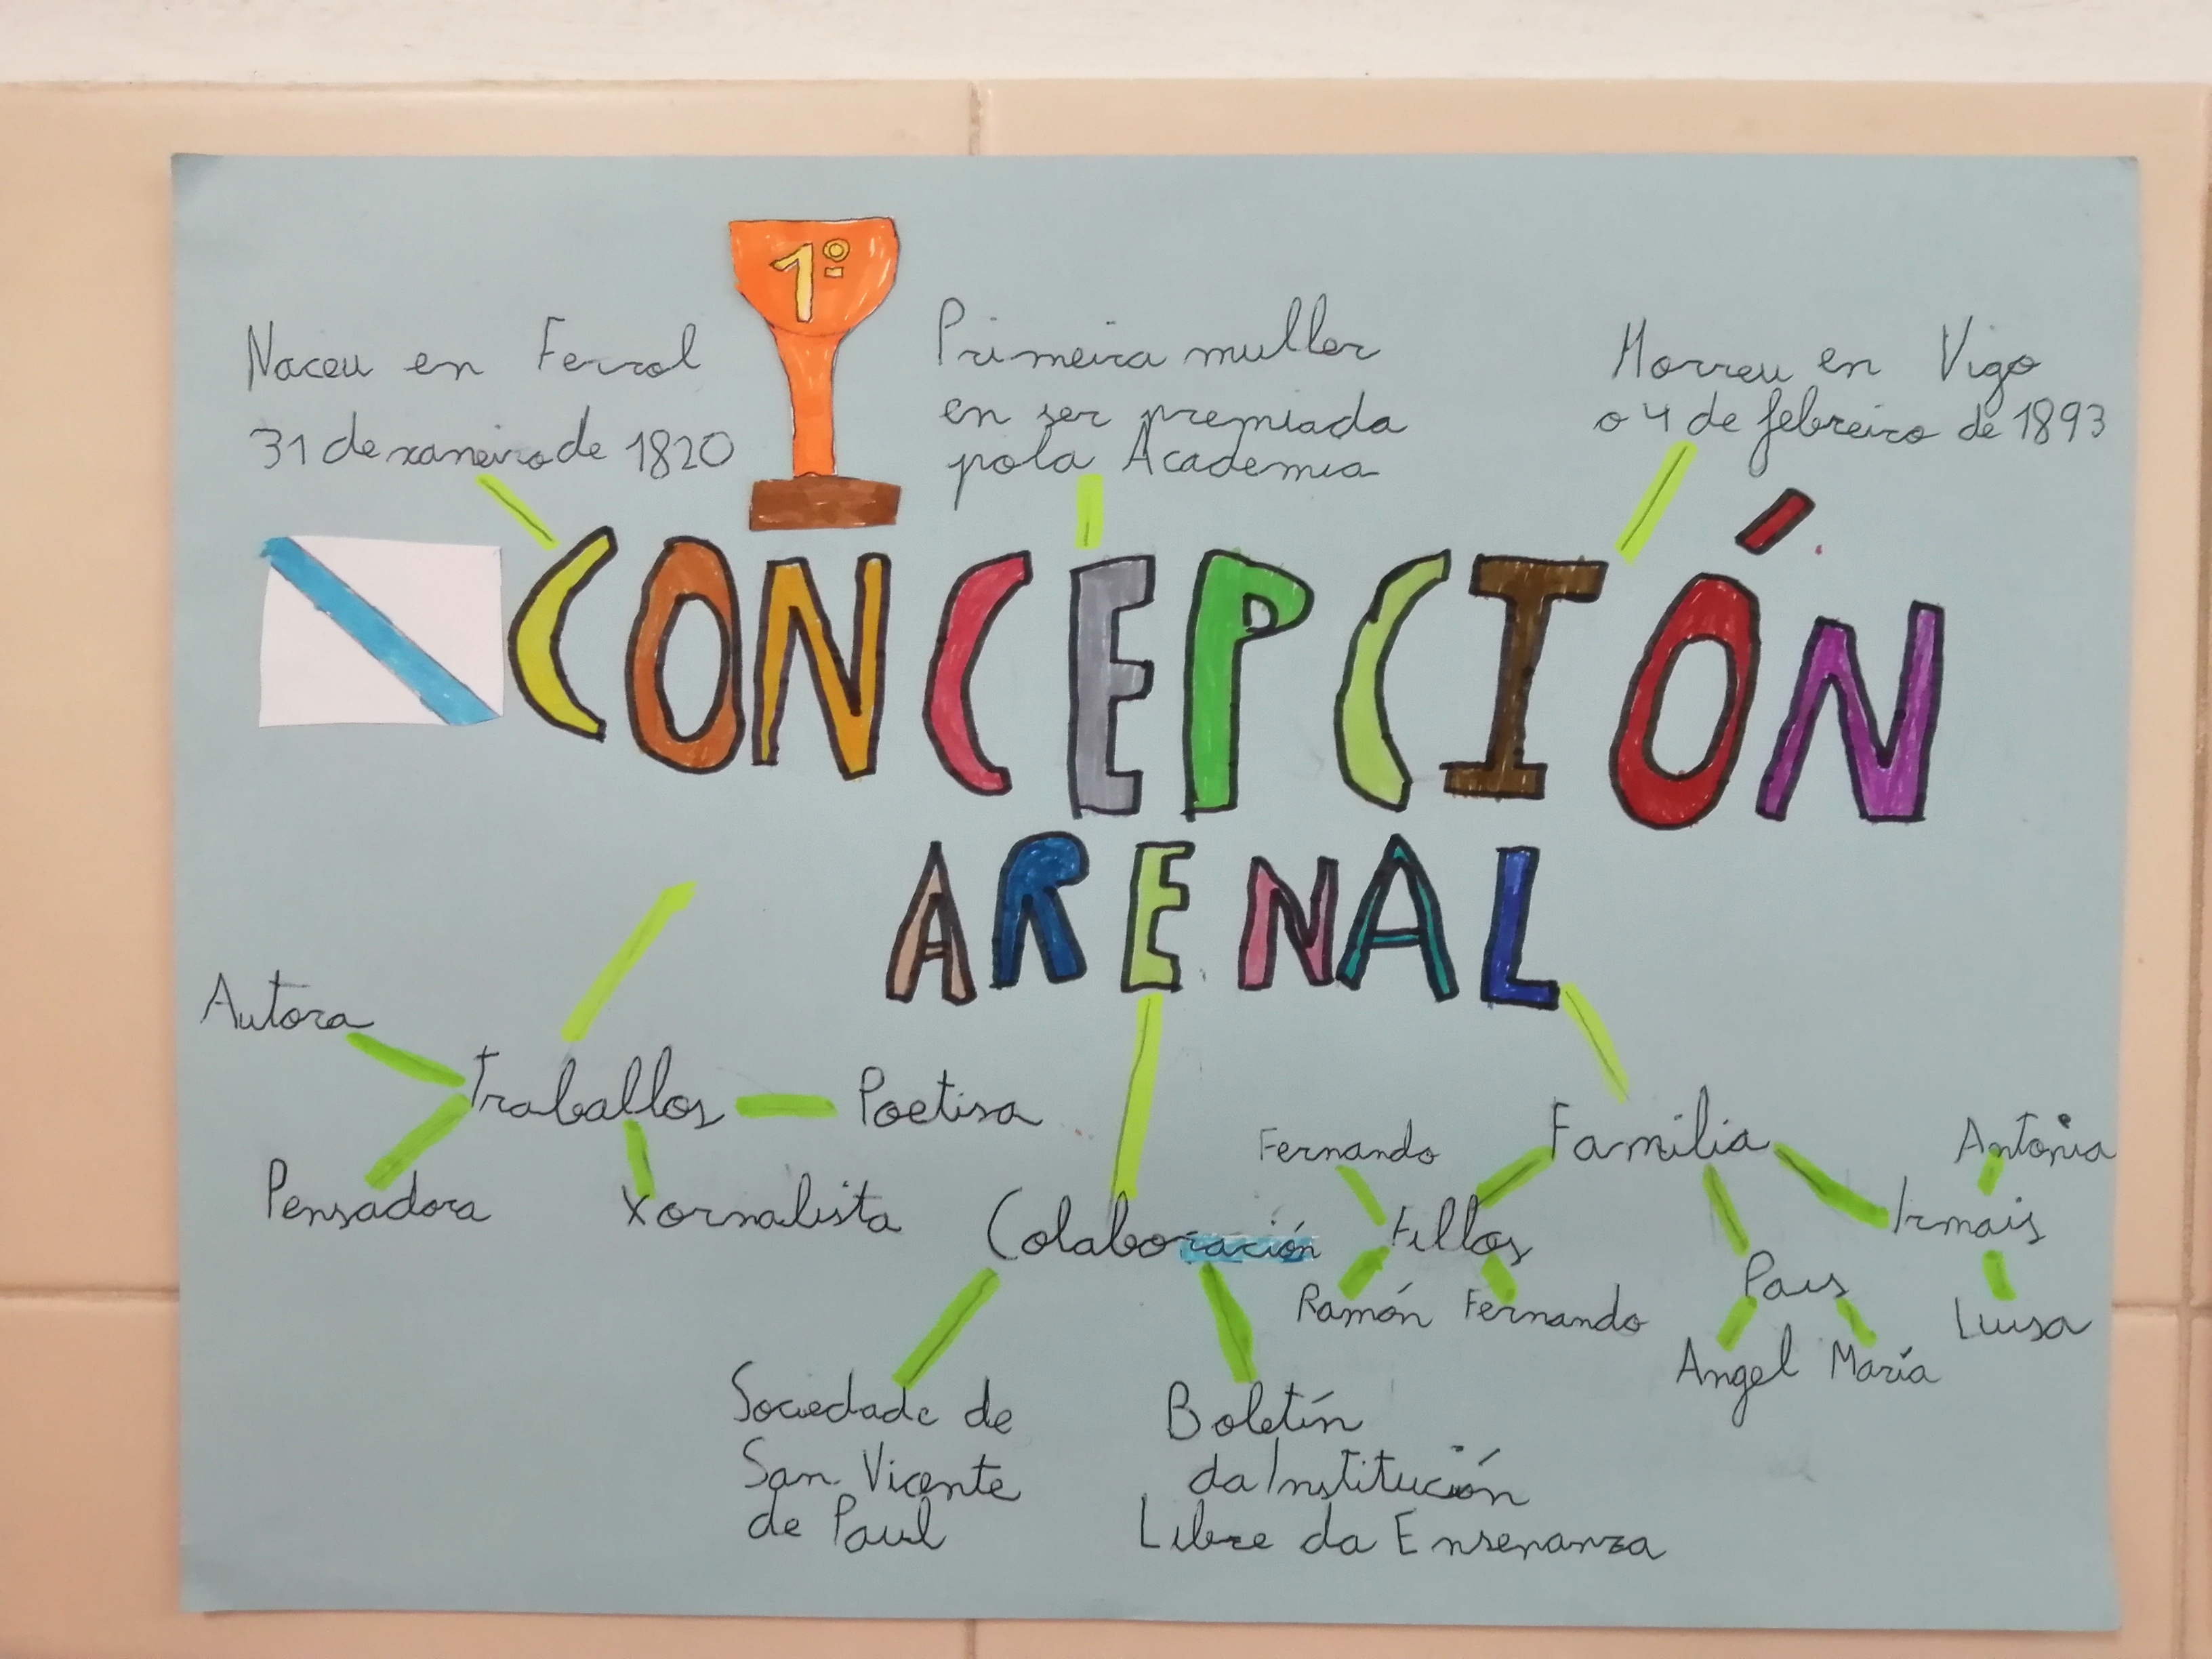 1º
Naceu en Ferrol
31 de xaneiro de 1820
Primeira muller
en ser premiada
pola Academia
Morreu en Vigo
o 4 de febreiro de 1893
CONCEPCIÓN
ARENAL
Autora
Traballos
Poetisa
Pensadora
Xornalista
Colaboración
Sociedade de
San Vicente
de Paul
Boletín
da Institución
Libre da Ensenanza
Familia
Fernando
Fillos
Ramón Fernando
Pais
Angel María
Antonia
Irmais
Luisa